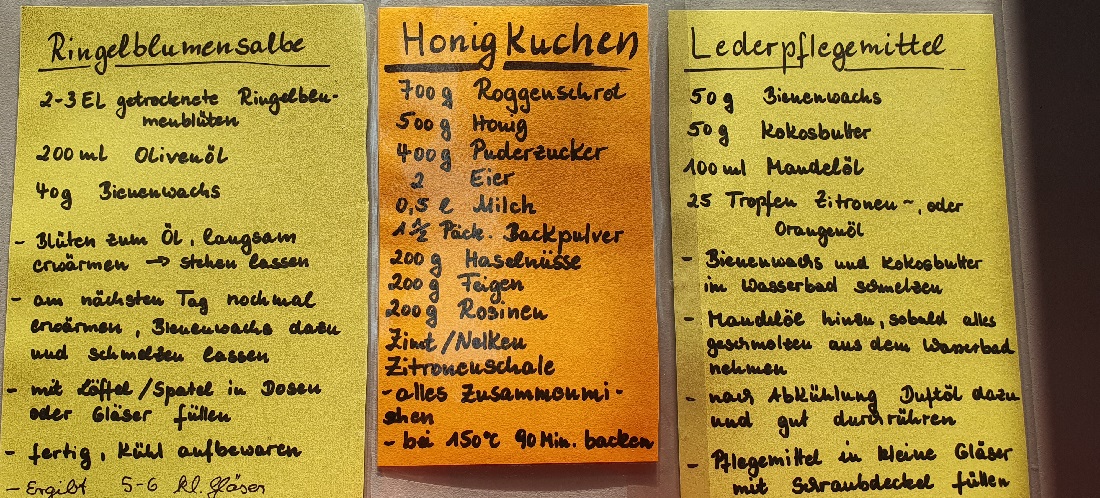 Ringelblumensalbe
2-3 EL getrocknete Ringelblu-
menblüten
200 ml Olivenöl
40g Bienenwachs
- Blüten zum Öl, langsam
erwärmen → stehen lassen
- am nächsten Tag nochmal
erwärmen, Bienenwachs dazu
und schmelzen lassen
- mit Löffel/Spatel in Dosen
oder Gläser füllen
- fertig, kühl aufbewaren
- Ergibt 5-6 kl. Gläser
Honigkuchen
700g Roggenschrot
500g Honig
400g Puderzucker
2 Eier
0,5 l Milch
1½ Päck. Backpulver
200 g Haselnüsse
200 g Feigen
200 g Rosinen
Zimt/Nelken
Zitronenschale
- alles Zusammenmi-
schen
- bei 150°C 90 Min. backen
Lederpflegemittel
50g Bienenwachs
50g Kokosbutter
100ml Mandelöl
25 Tropfen Zitronen~, oder
Orangenöl
- Bienenwachs und Kokosbutter
im Wasserbad schmelzen
- Mandelöl hinzu, sobald alles
geschmolzen aus dem Wasserbad
nehmen
- nach Abkühlung Duftöl dazu
und gut durchrühren
- Pflegemittel in kleine Gläser
mit Schraubdeckel füllen